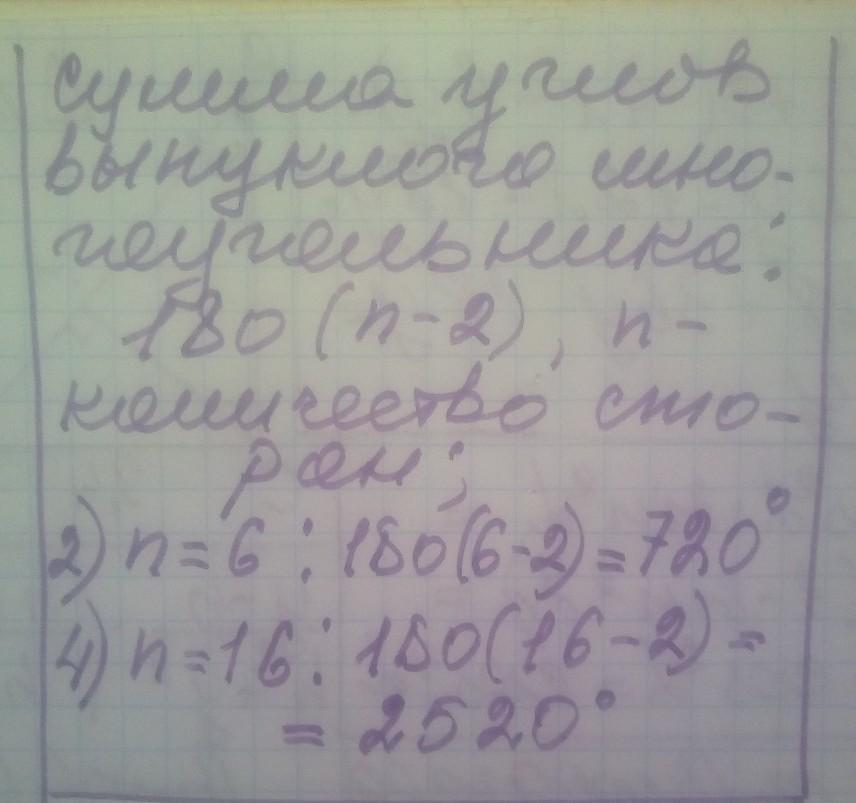 сумма углов
выпуклого мно-
гоугольника:
180 (n-2), n-
количество сто-
рон;
2) n=6 : 180(6-2)=720°
4) n=16: 180(16-2)=
= 2520°